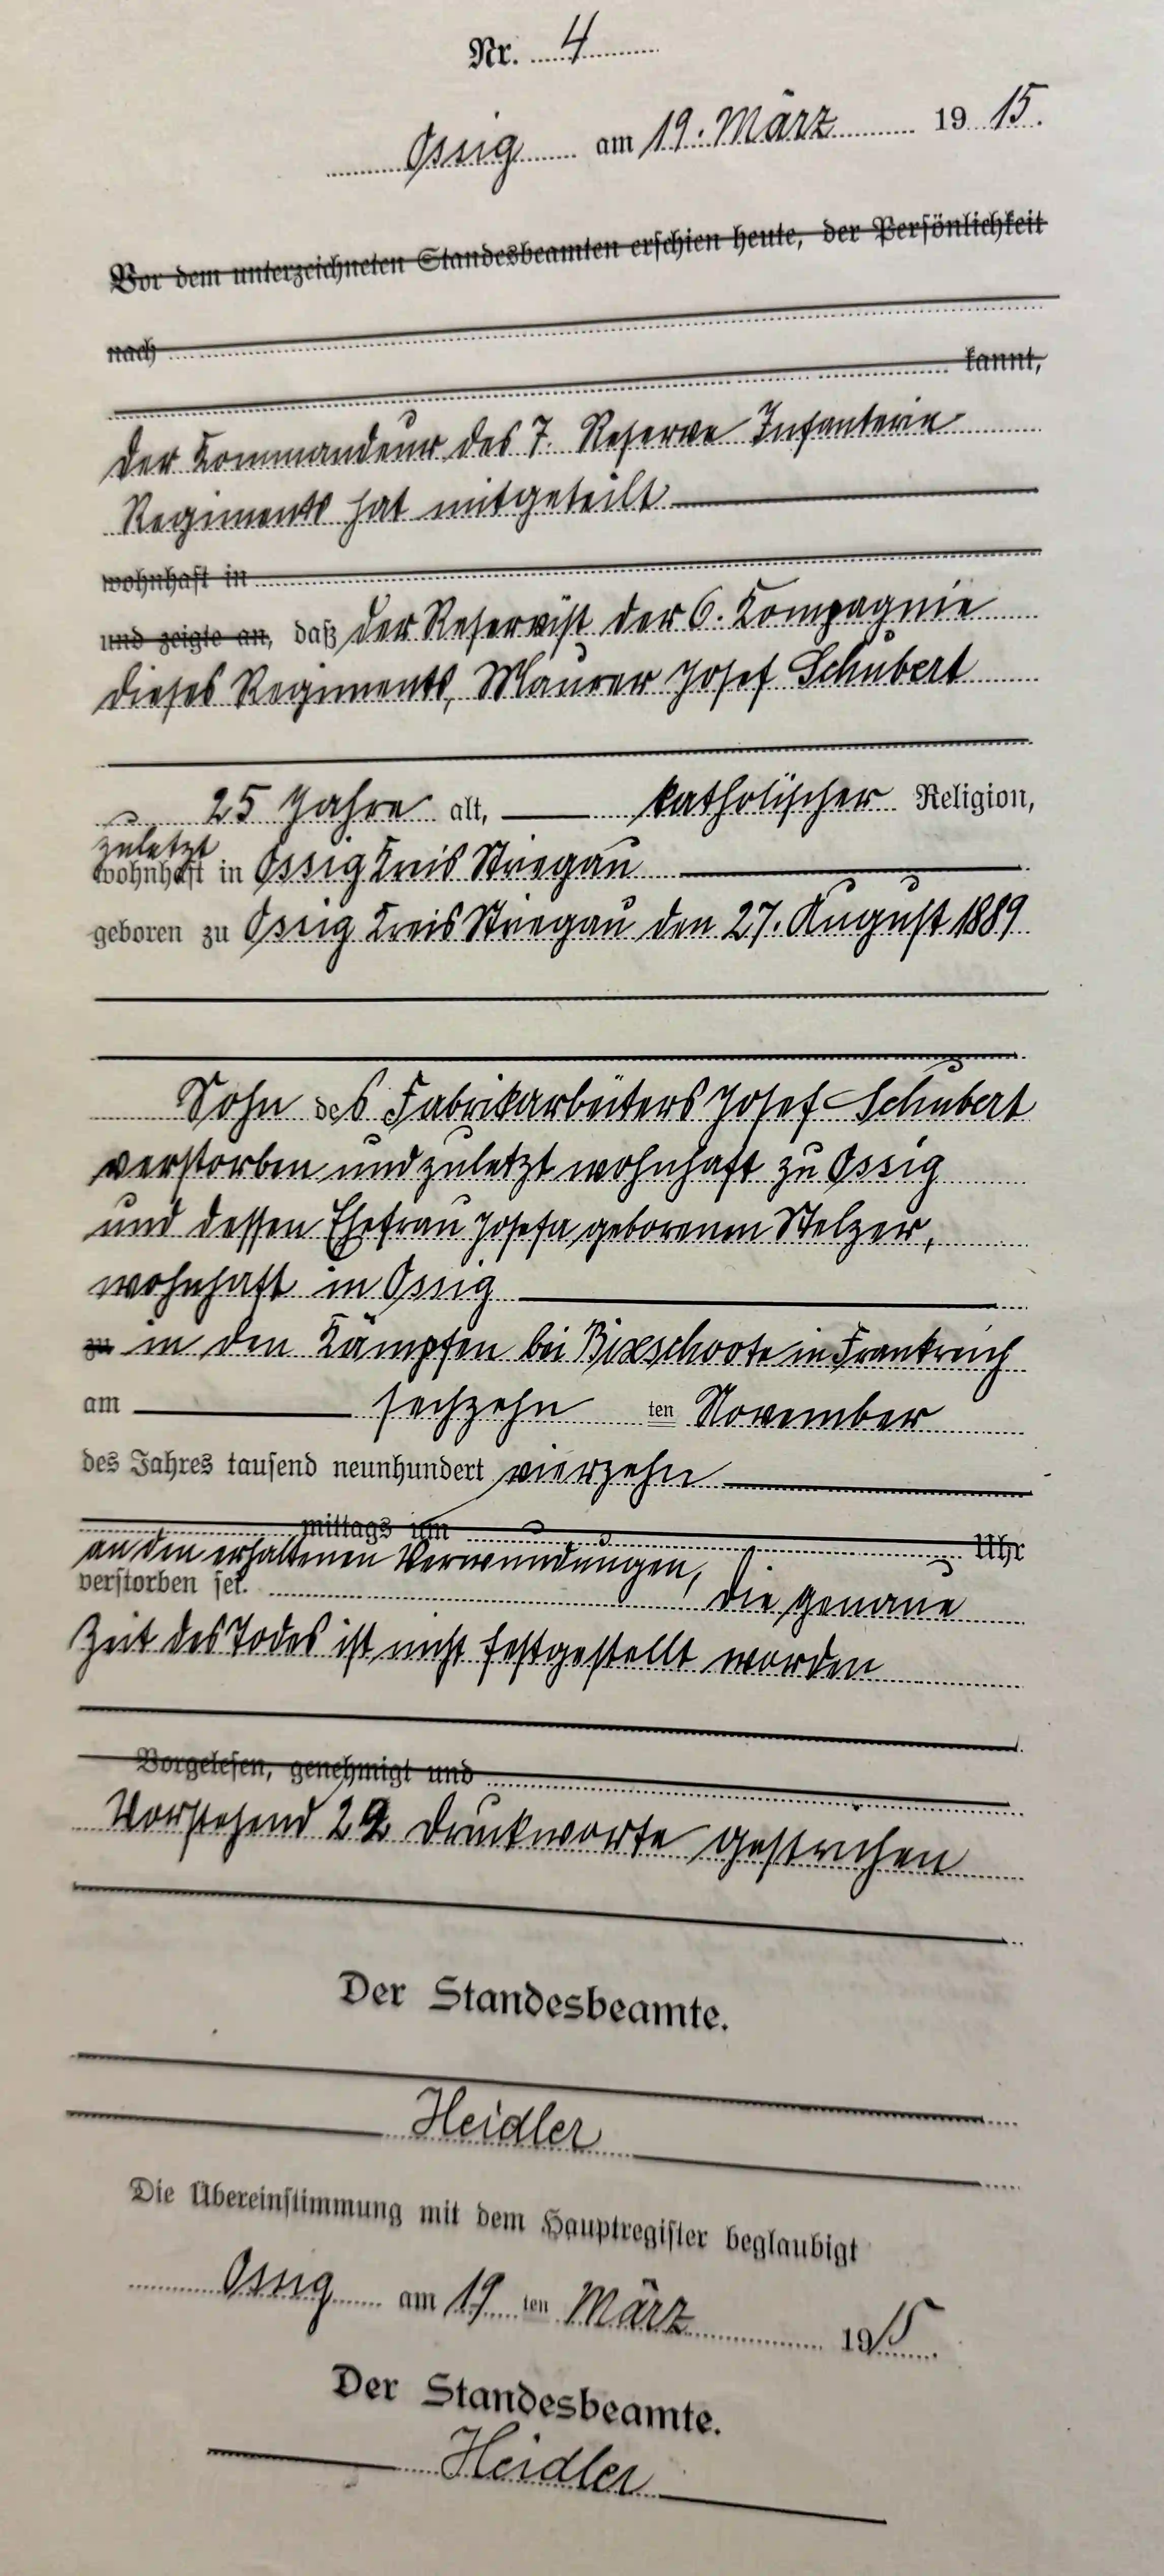 Nr. 4
Ossig am 19. März 1915.
Vor dem unterzeichneten Standesbeamten erschien heute, der Persönlichkeit
nach
kannt,
der Kommandeur des 7. Reserve Infanterie
Regiments hat mitgeteilt
wohnhaft in
und zeigte an, daß der Reservist der 6. Kompagnie
dieses Regiments, Maurer Josef Schubert
25 Jahre alt, katholischer Religion,
zuletzt
wohnhaft in Ossig Kreis Striegau
geboren zu Ossig Kreis Striegau den 27. August 1889
Sohn des Fabrikarbeiters Josef Schubert
verstorben und zuletzt wohnhaft zu Ossig
und dessen Ehefrau Josefa geborenen Stelzer,
wohnhaft in Ossig
zu in den Kämpfen bei Bixschoote in Frankreich
am sechzehn ten November
des Jahres tausend neunhundert vierzehn
mittags um Uhr
an den erhaltenen Verwundungen,
verstorben sei. Die genaue
Zeit des Todes ist nicht festgestellt worden
Vorgelesen, genehmigt und
Vorstehend 22 Druckworte gestrichen
Der Standesbeamte.
Heidler
Die Übereinstimmung mit dem Hauptregister beglaubigt
Ossig am 19 ten März 1915.
Der Standesbeamte.
Heidler